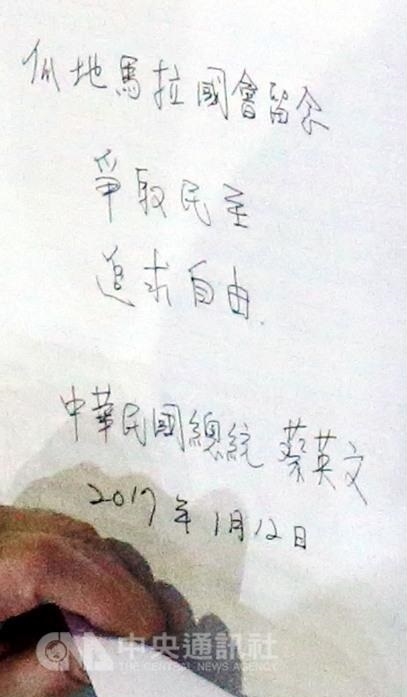 瓜地馬拉國會留念
爭取民主
追求自由.
中華民國總統 蔡英文
2017年1月12日
CNA 中央通訊社
THE CENTRAL NEWS AGENCY